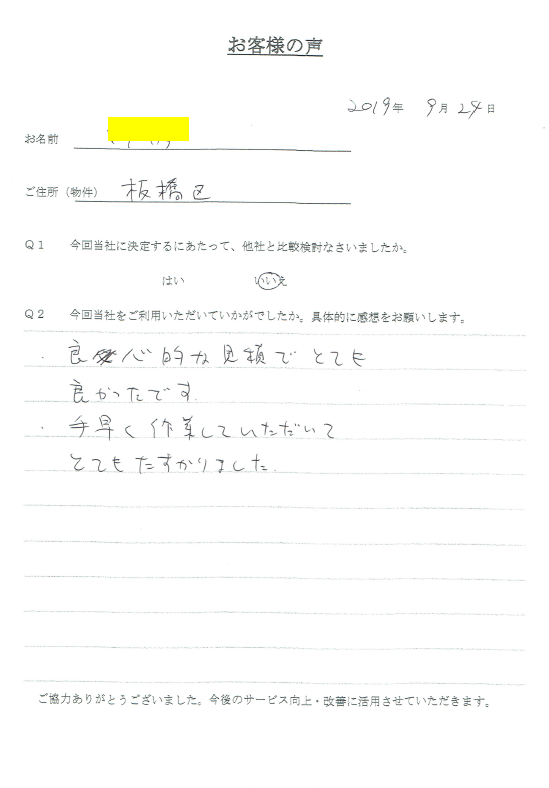 お客様の声
2019年 9月 24日
お名前
ご住所（物件） 板橋区
Q1 今回当社に決定するにあたって、他社と比較検討なさいましたか。
はい いいえ
Q2 今回当社をご利用いただいていかがでしたか。具体的に感想をお願いします。
・良心的な見積でとても
良かったです。
・手早く作業していただいて
とてもたすかりました。
ご協力ありがとうございました。今後のサービス向上・改善に活用させていただきます。